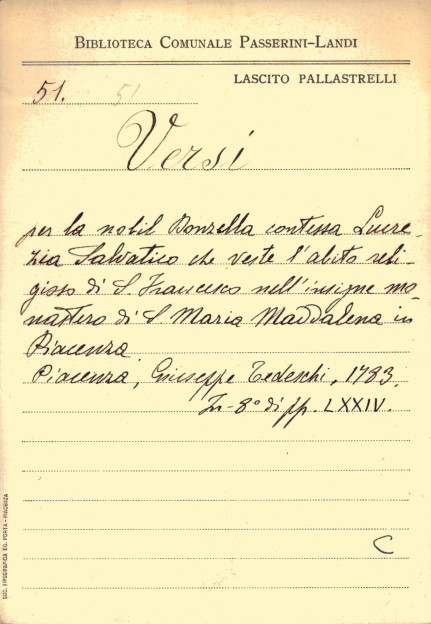 BIBLIOTECA COMUNALE PASSERINI-LANDI
LASCITO PALLASTRELLI
51. 51
Versi
per la nobil Donzella contessa Lucre-
zia Salvatico che veste l'abito reli-
gioso di S. Francesco nell'insigne mo-
nastero di S. Maria Maddalena in
Piacenza.
Piacenza, Giuseppe Tedeschi, 1783.
In-8° di pp. LXXIV.
C
SOC. TIPOGRAFICA ED. PORTA - PIACENZA